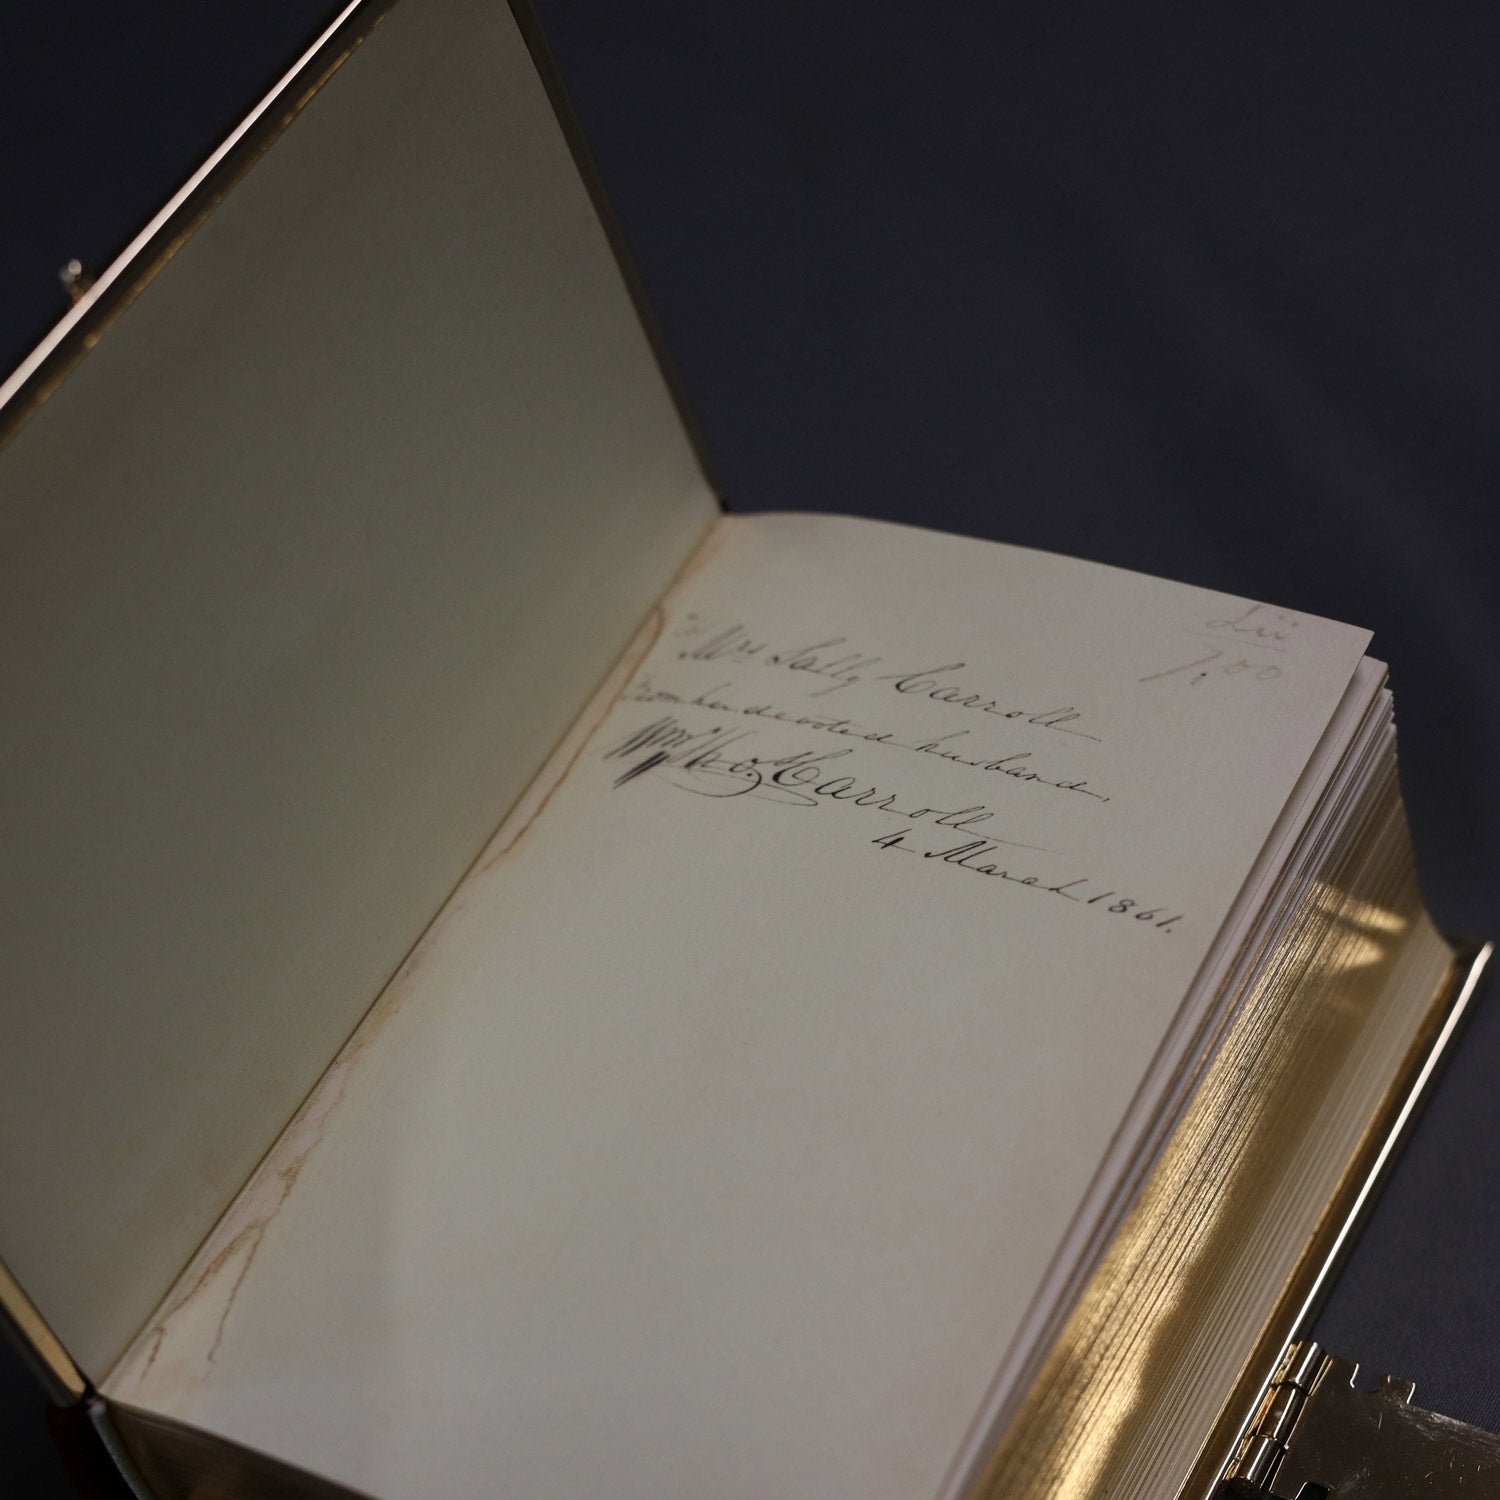 7.00
To Mrs Sally Carroll
from her devoted husband,
Wm Tho. Carroll
4 March 1861.